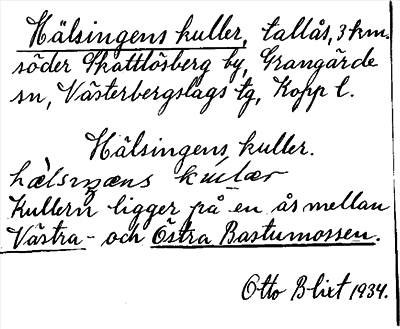 Hälsingens kuller, tallås, 3 km.
söder Skattlösberg by, Grangärde
sn, Västerbergslags tg, Kopp l.
Hälsingens kuller.
Kullern ligger på en ås mellan
Västra- och Östra Bastumossen.
Otto Blixt 1934.